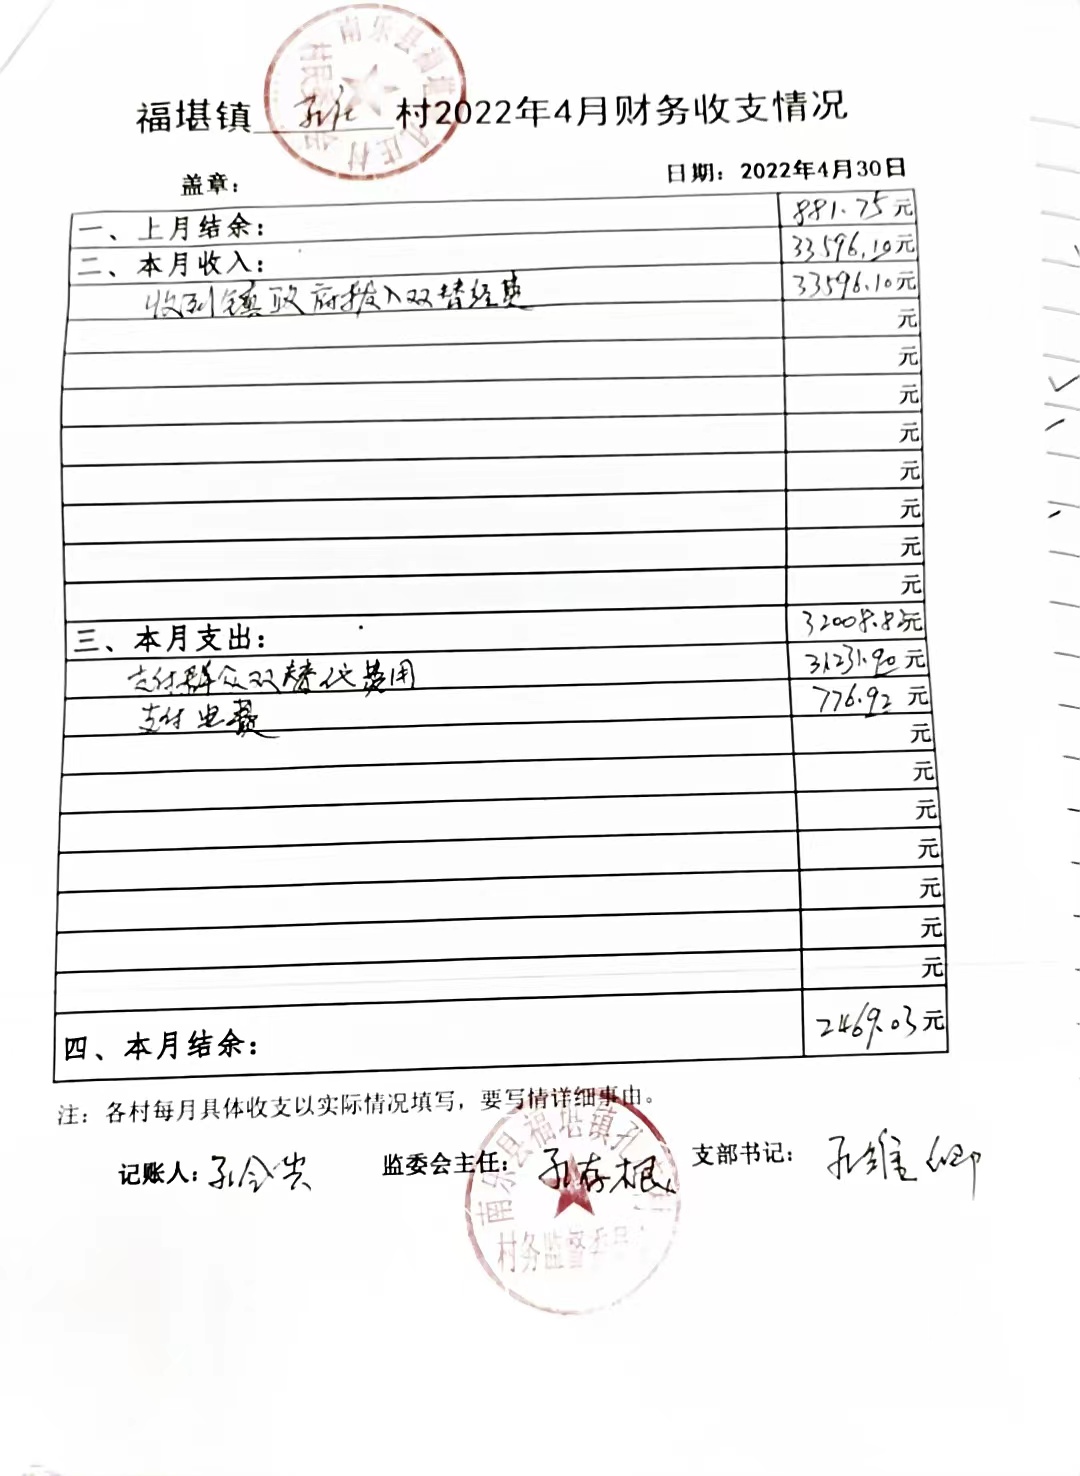 南乐县福堪
孔庄村
村民
福堪镇 孔庄 村2022年4月财务收支情况
盖章：
日期：2022年4月30日
一、上月结余： 881.75元
二、本月收入： 33596.10元
收到镇政府拨入双替经费 33596.10元
元
元
元
元
元
元
元
元
三、本月支出： 32008.82元
支付群众双替代费用 31231.90元
支付电费 776.92元
元
元
元
元
元
元
元
四、本月结余： 2469.03元
注：各村每月具体收支以实际情况填写，要写情详细事由。
记账人：孔令 监委会主任：孔存根 支部书记：孔维卿
南乐县福堪镇孔
村务监督委员